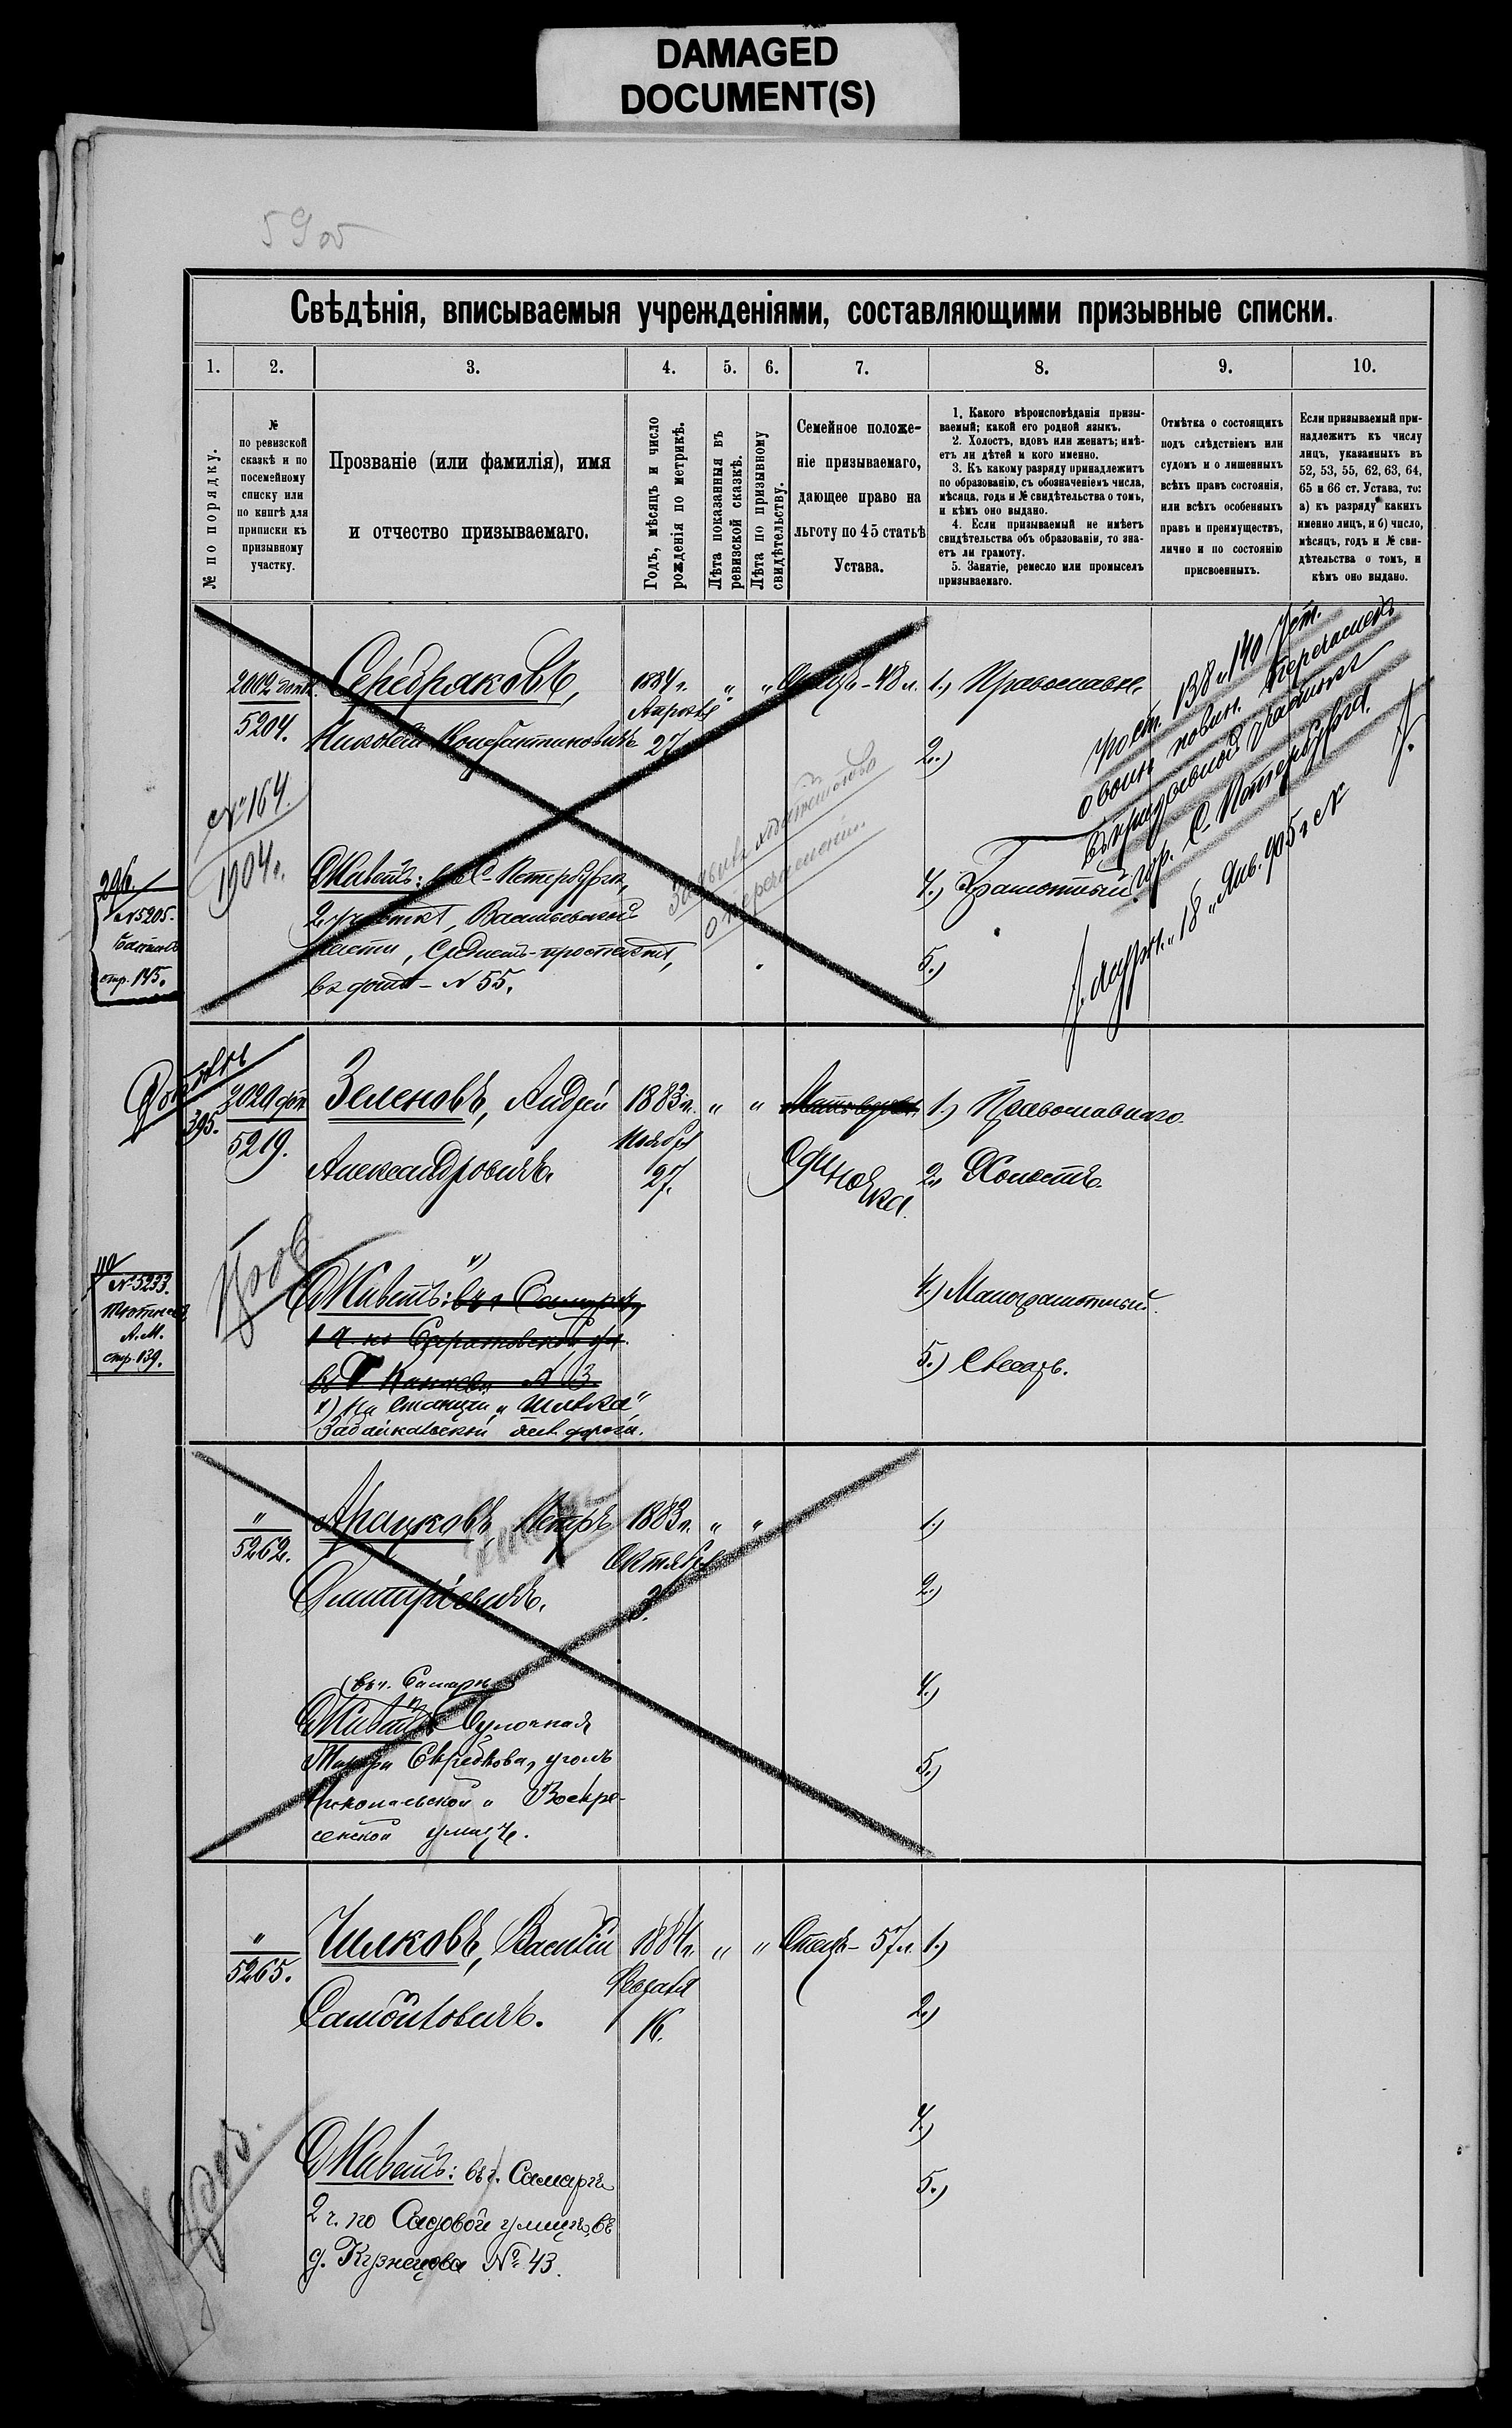 DAMAGED
DOCUMENT(S)
59об
Свѣдѣнія, вписываемыя учрежденіями, составляющими призывные списки.
1. 2. 3. 4. 5. 6. 7. 8. 9. 10.
№ по порядку.
№
по ревизской
сказкѣ и по
посемейному
списку или
по книгѣ для
приписки къ
призывному
участку.
Прозваніе (или фамилія), имя
и отчество призываемаго.
Годъ, мѣсяцъ и число
рожденія по метрикѣ.
Лѣта показанныя въ
ревизской сказкѣ.
Лѣта по призывному
свидѣтельству.
Семейное положе-
ніе призываемаго,
дающее право на
льготу по 45 статьѣ
Устава.
1. Какого вѣроисповѣданія призы-
ваемый; какой его родной языкъ.
2. Холостъ, вдовъ или женатъ; имѣ-
етъ ли дѣтей и кого именно.
3. Къ какому разряду принадлежитъ
по образованію, съ обозначеніемъ числа,
мѣсяца, года и № свидѣтельства о томъ,
и кѣмъ оно выдано.
4. Если призываемый не имѣетъ
свидѣтельства объ образованіи, то зна-
етъ ли грамоту.
5. Занятіе, ремесло или промыселъ
призываемаго.
Отмѣтка о состоящихъ
подъ слѣдствіемъ или
судомъ и о лишенныхъ
всѣхъ правъ состоянія,
или всѣхъ особенныхъ
правъ и преимуществъ,
лично и по состоянію
присвоенныхъ.
Если призываемый при-
надлежитъ къ числу
лицъ, указанныхъ въ
52, 53, 55, 62, 63, 64,
65 и 66 ст. Устава, то:
а) къ разряду какихъ
именно лицъ, и б) число,
мѣсяцъ, годъ и № сви-
дѣтельства о томъ, и
кѣмъ оно выдано.
2002 доп. Серебряковъ, 1884 г. " " Отецъ - 48 л. 1.) Православн.
5204. Николай Константиновичъ Апрѣля 27 2.)
№ 164
1904 г.
Живетъ: въ С-Петербургѣ,
2 участкѣ, Васильевской
части, Среднемъ-проспектѣ,
въ домѣ - № 55.
Заявилъ ходатайство
о перечисленіи.
4.) Грамотный
5.)
по ст. 138 и 140 Уст.
о воин. повин. перечисленъ
въ призывной участокъ
гор. С. Петербурга.
18 Янв. 905 г №
296.
№ 5205.
стр. 145.
Добавл
395.
2020 доп Зеленовъ, Андрей 1883 г. " " 1.) Православнаго.
5219. Александровичъ. Ноября 27. Одиночка. 2.) Холостъ.
110
№ 5233.
А.М.
стр. 139.
Живетъ: въ г. Самарѣ,
1 ч. по Саратовской ул.
№ 3
х) На Станціи "Шилка"
Забайкальской жел. дороги.
4.) Малограмотный.
5.) Слесарь.
" Арацковъ, Петръ 1883 г. " " 1.)
5262. Дмитріевичъ. Октября 3. 2.)
въ г. Самарѣ
Живетъ Булочная
уголъ
Никольской и Воскре-
сенской улицъ.
4.)
5.)
" Чилковъ, Василій 1884 г. " " Отецъ - 57 л. 1.)
5265. Самойловичъ. 16. 2.)
Живетъ: въ г. Самарѣ
2 ч. по Садовой улицѣ, въ
д. Кузнецова № 43.
4.)
5.)